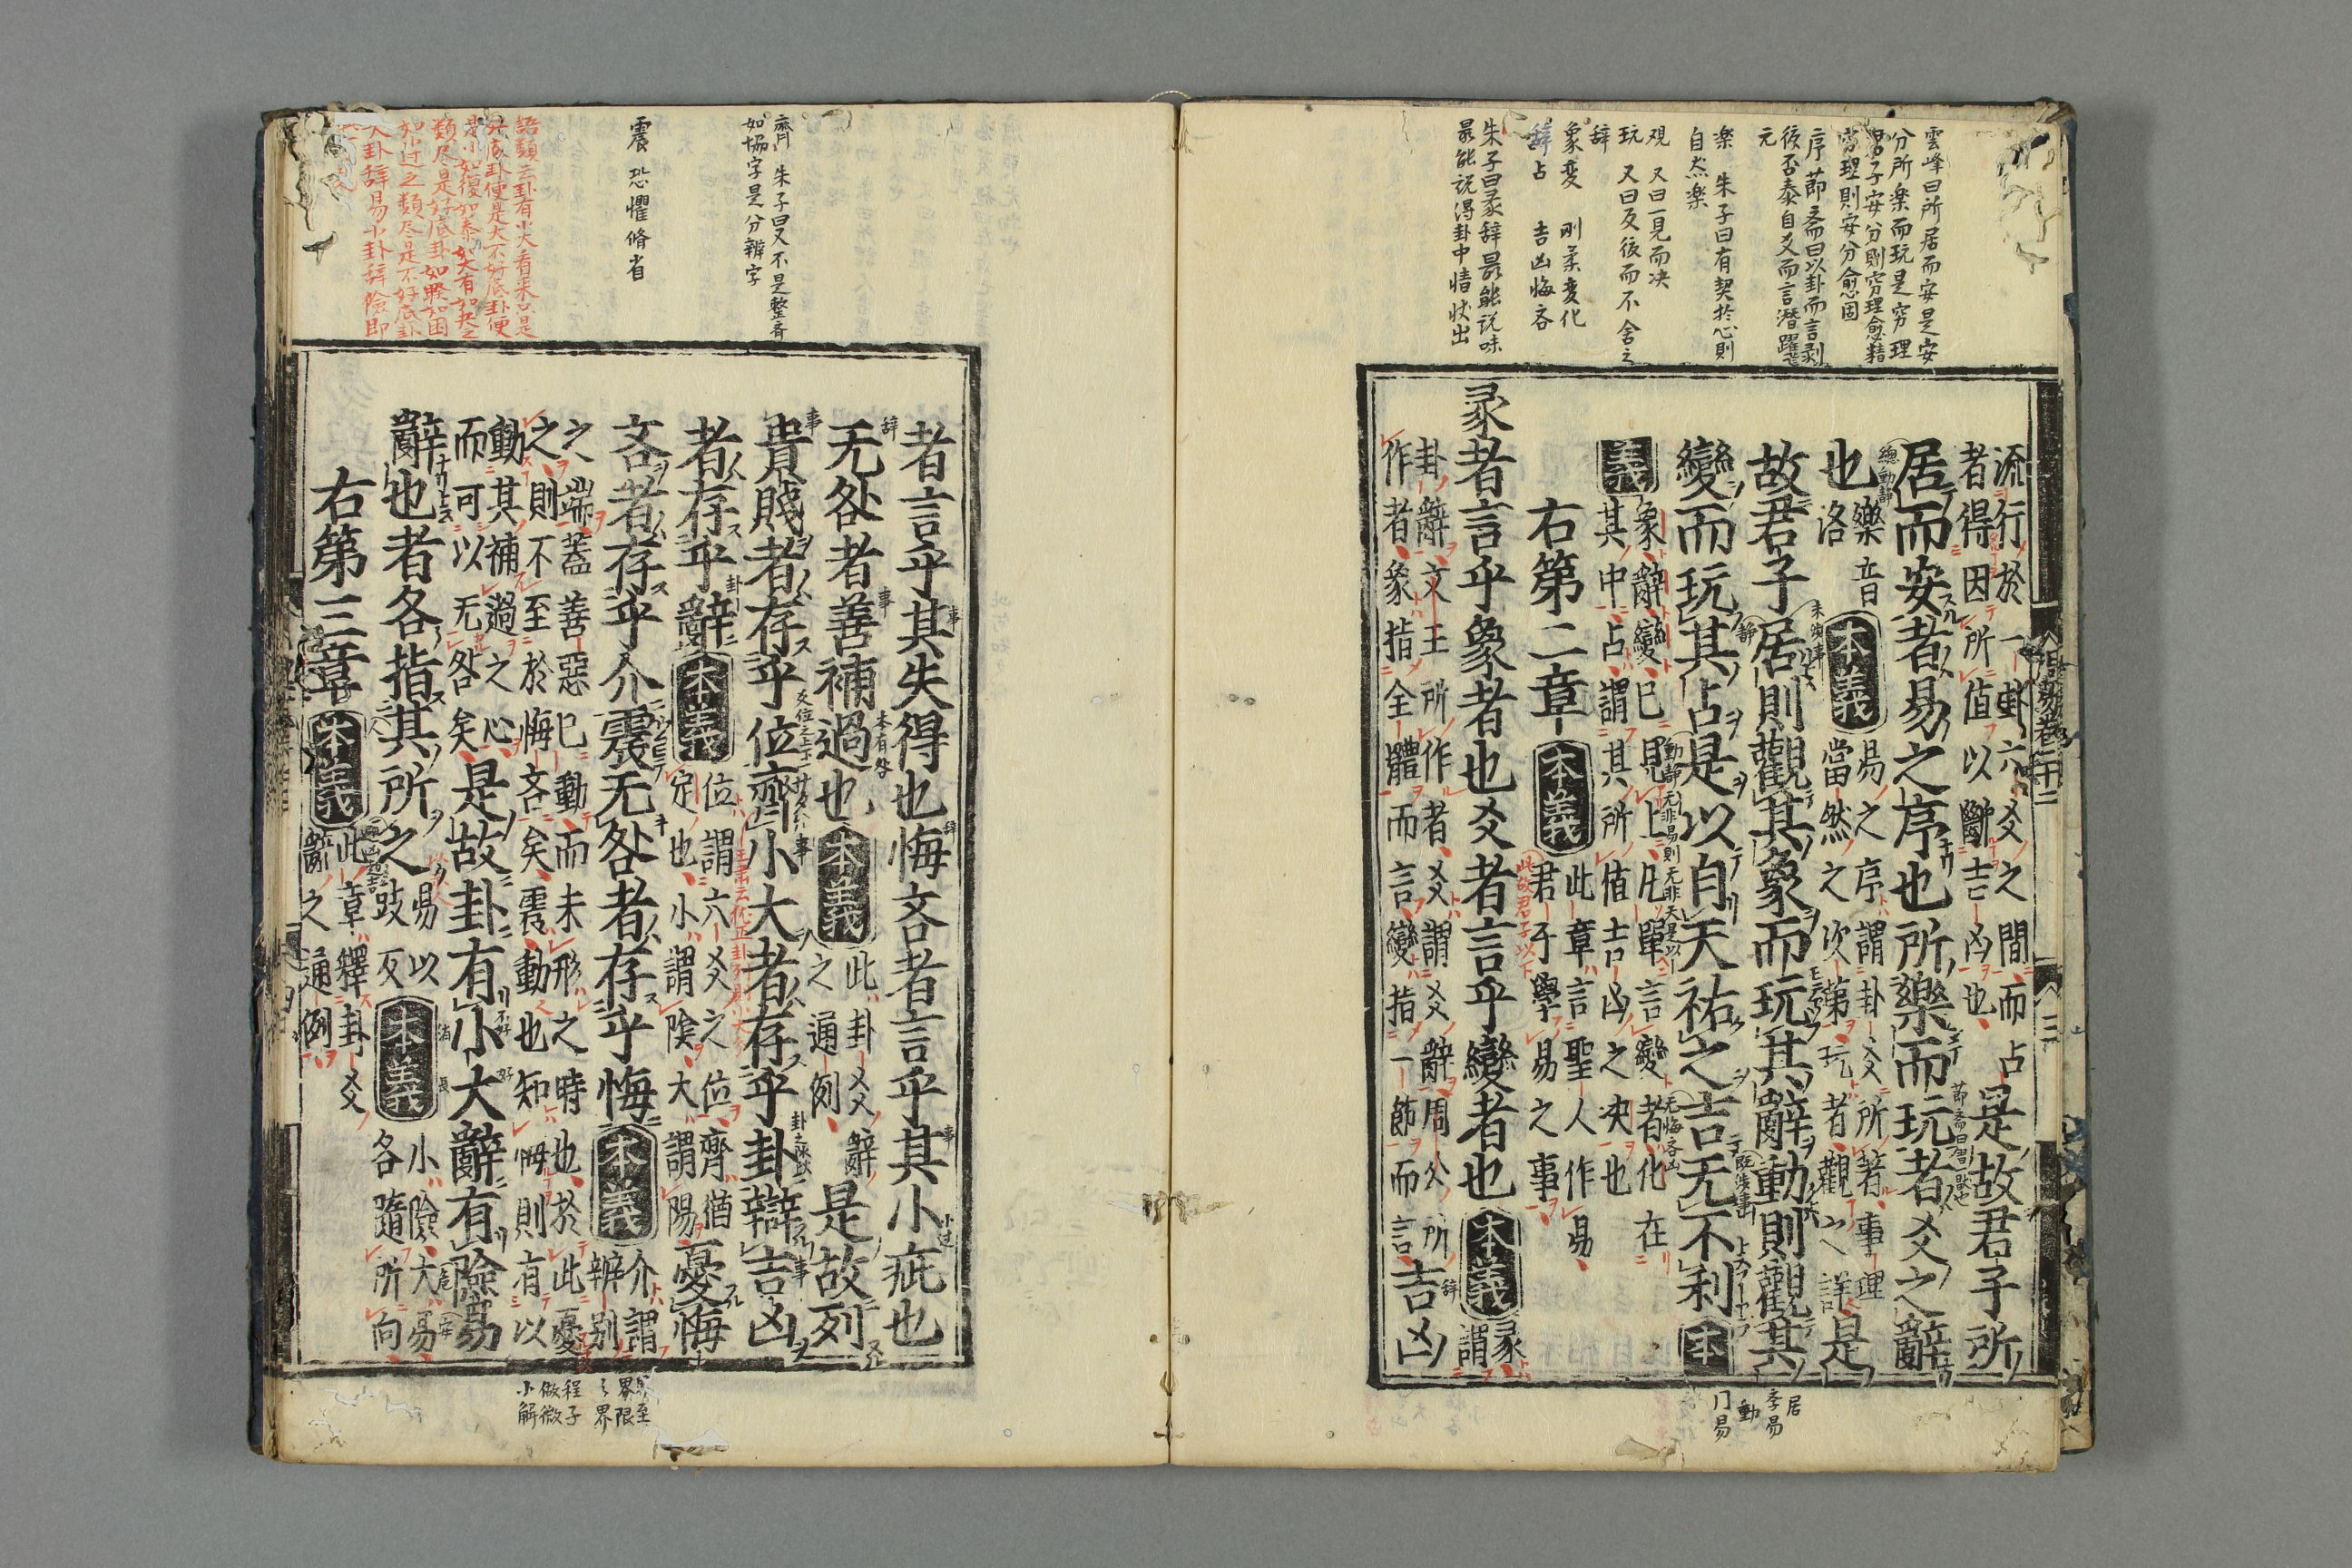 雲峰曰所居而安是安
分所楽而玩是窮理
君子安分則窮理愈精
窮理則安分愈固
序 節斎曰以卦而言剥
復否泰自爻而言潜躍
元
楽 朱子曰有契於心則
自然楽
観 又曰一見而决
玩 又曰反復而不舍之
辞
象変 剛柔変化
辞占 吉凶悔吝
朱子曰彖辞最能説味
最能説得卦中情状出
流行於一卦六爻之間而占
者得因所値以斷吉凶也
是故君子所
居而安者易之序也所樂而玩者爻之辭
也
樂音
洛
本義
易之序謂卦爻所著事理
當然之次第玩者觀之詳
是
故君子居則觀其象而玩其辭動則觀其
變而玩其占是以自天祐之吉无不利
本
義
象辭變已見上凡單言變者化在
其中占謂其所值吉凶之决也
右第二章
本義
此章言聖人作易
君子學易之事
彖者言乎象者也爻者言乎變者也
本義
彖謂
卦辭文王所作者爻謂爻辭周公所
作者象指全體而言變指一節而言
吉凶
居
季易
動
门易
齊 朱子曰又不是整斉
如協字是分辨字
震 恐懼脩省
語類云卦有小大看来只是
好底卦便是大不好底卦便
是小如復如泰如大有如夬之
類尽是好底卦如睽如困
如小过之類尽是不好底卦
大卦辞易小卦辞險即
者言乎其失得也悔吝者言乎其小疵也
无咎者善補過也
本義
此卦爻辭
之通例
是故列
貴賤者存乎位齊小大者存乎卦辯吉凶
者存乎辭
本義
位謂六爻之位齊猶
定也小謂陰大謂陽
憂悔
吝者存乎介震无咎者存乎悔
本義
介謂
辨别
之端蓋善惡已動而未形之時也於此憂
之則不至於悔吝矣震動也知悔則有以
動其補過之心
而可以无咎矣
是故卦有小大辭有險易
辭也者各指其所之
易以
豉反
本義
小險大易
各隨所向
右第三章
本義
此章釋卦爻
辭之通例
界限
之界
程子
做微
小解
周易卷二十二
三
四